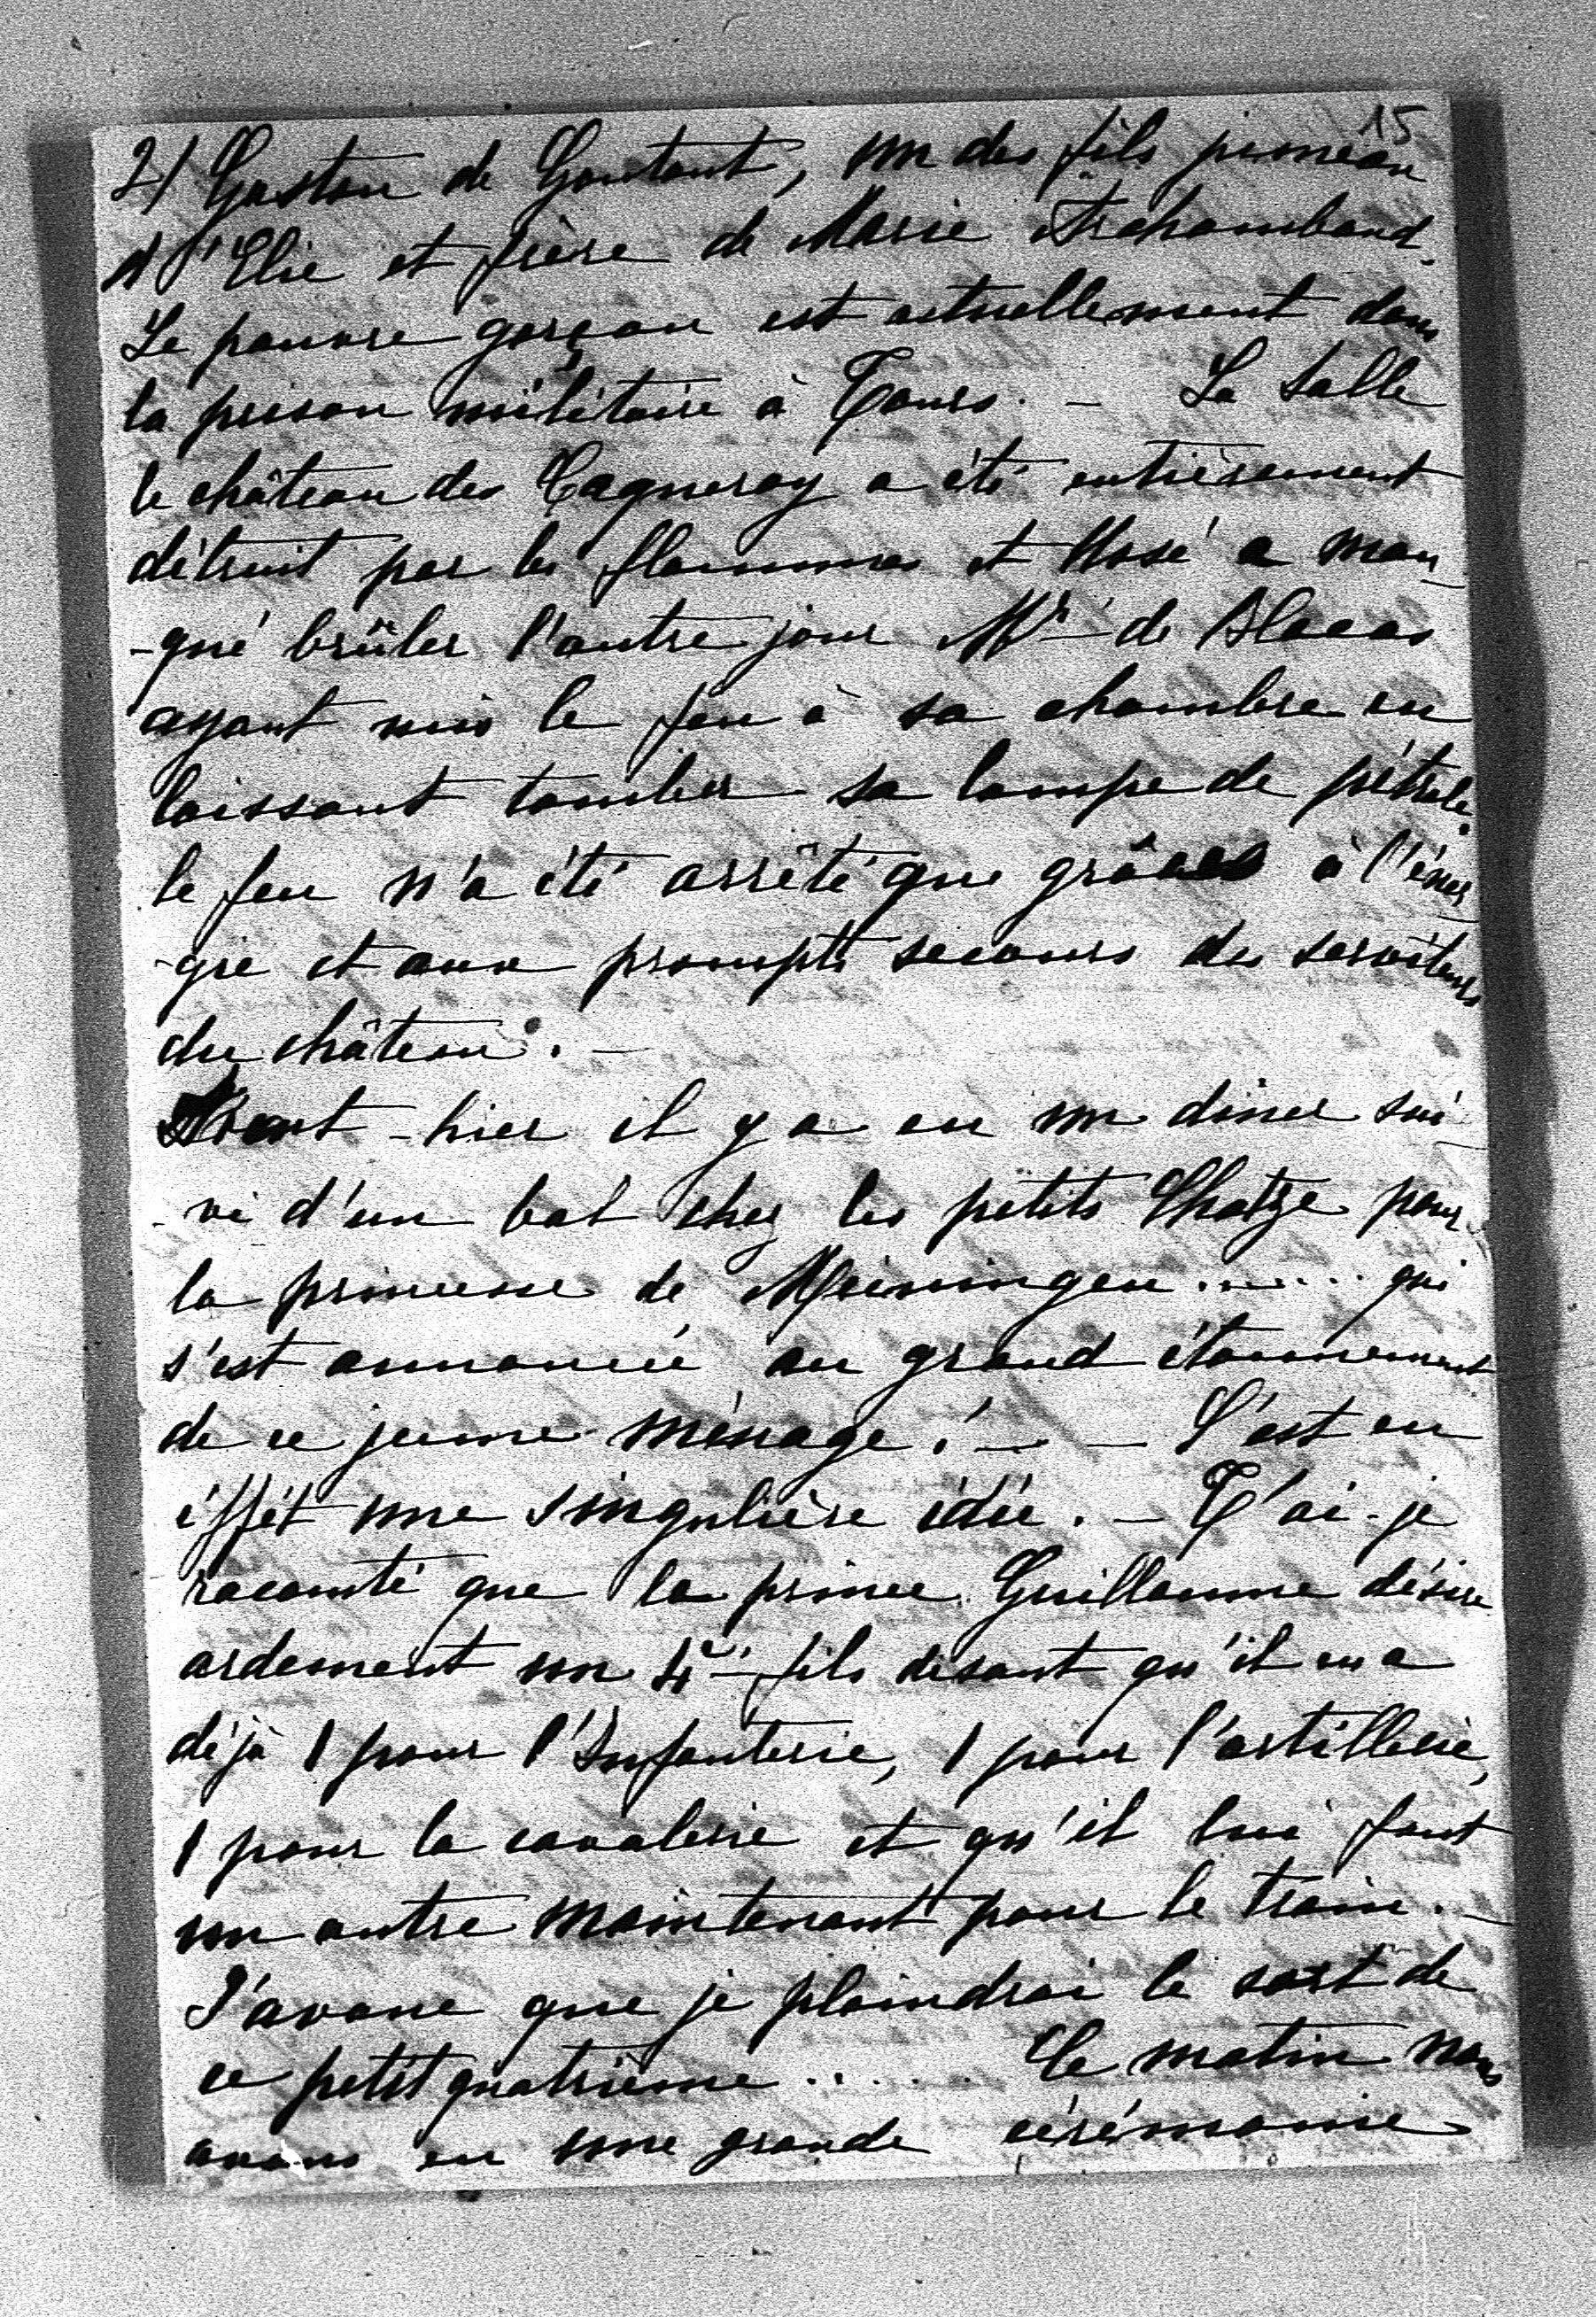 15
2/ Gaston de Gontaut, un des fils jumeau
d'Elie et frère de Marie Archambaud.
Le pauvre garçon est actuellement dans
la prison militaire à Tours. – La Salle
le château des Tagneray a été entièrement
détruit par les flammes et Ussé a man
-qué brûler l'autre jour Mr de Blacas
ayant mis le feu à sa chambre en
laissant tomber sa lampe de pétrole.
le feu n'a été arrêté que grâces à l'éner
-gie et aux prompts secours des serviteurs
du château. –
Avant-hier il y a eu un diner sui
-vi d'un bal chez les petits Hatze pour
la princesse de Meiningen ...... qui
s'est annoncée au grand étonnement
de ce jeune ménage ! – – C'est en
éffét une singulière idée. – T'ai-je
raconté que le prince Guillaume désire
ardement un 4r fils disant qu'il en a
déjà 1 pour l'Infanterie, 1 pour l'artillerie,
1 pour la cavalerie et qu'il lui faut
un autre maintenant pour le train. –
J'avoue que je plaindrai le sort de
ce petit quatrième ...... Ce matin nous
avons eu une grande cérémonie